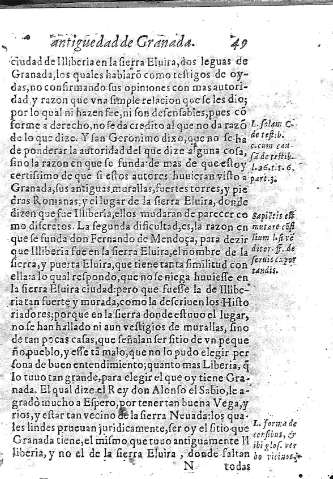 antiguedad de Granada. 49
ciudad de Illiberia en la sierra Eluira, dos leguas de
Granada, los quales hablarõ como testigos de oy-
das, no confirmando sus opiniones con mas autori-
dad y razon que vna simple relacion que se les dio;
por lo qual ni hazen fee, ni son defensables, pues cõ
forme a derecho, no se da credito al que no da razõ
de lo que dize. Y san Geronimo dixo, que no se ha
de ponderar la autoridad del que dize alguna cosa,
sino la razon en que se funda: de mas de que estoy
certissimo de que si estos autores huuieran visto a
Granada, sus antiguas murallas, fuertes torres, y pie
dras Romanas, y el lugar de la sierra Eluira, donde
dizen que fue Illiberia, ellos mudaran de parecer co
mo discretos. La segunda dificultad, es, la razon en
que se funda don Fernando de Mendoça, para dezir
que Illiberia fue en la sierra Eluira, el nombre de la
sierra, y puerta Eluira, que tiene tanta similitud con
ella: a lo qual respondo, que no se niega huuiese en
la sierra Eluira ciudad: pero que fuesse la de Illibe-
ria tan fuerte y murada, como la descriuen los Histo
riadores; porque en la sierra donde estuuo el lugar,
no se han hallado ni aun vestigios de murallas, sino
de tan pocas casas, que señalan ser sitio de vn peque
ño pueblo, y esse tã malo, que no lo pudo elegir per
sona de buen entendimiento; quanto mas Liberia, q̃
lo tuuo tan grande, para elegir el que oy tiene Gra-
nada. El qual dize el Rey don Alonso el Sabio, le a-
gradò mucho a Espero, por tener tan buena Vega, y
rios, y estar tan vecino de la sierra Neuada: los qua-
les lindes prueuan juridicamente, ser oy el sitio que
Granada tiene, el mismo, que tuuo antiguamente Il
liberia, y no el de la sierra Eluira, donde faltan
N todas
L. solam C.
de testib.
c. cum cau
sã de testib.
l. 26. t. 1. 6.
part. 3.
Sapiẽtis est
mutare cõ
silium
L. forma de
censibus, &
ibi glos. ver
bo vicinos.